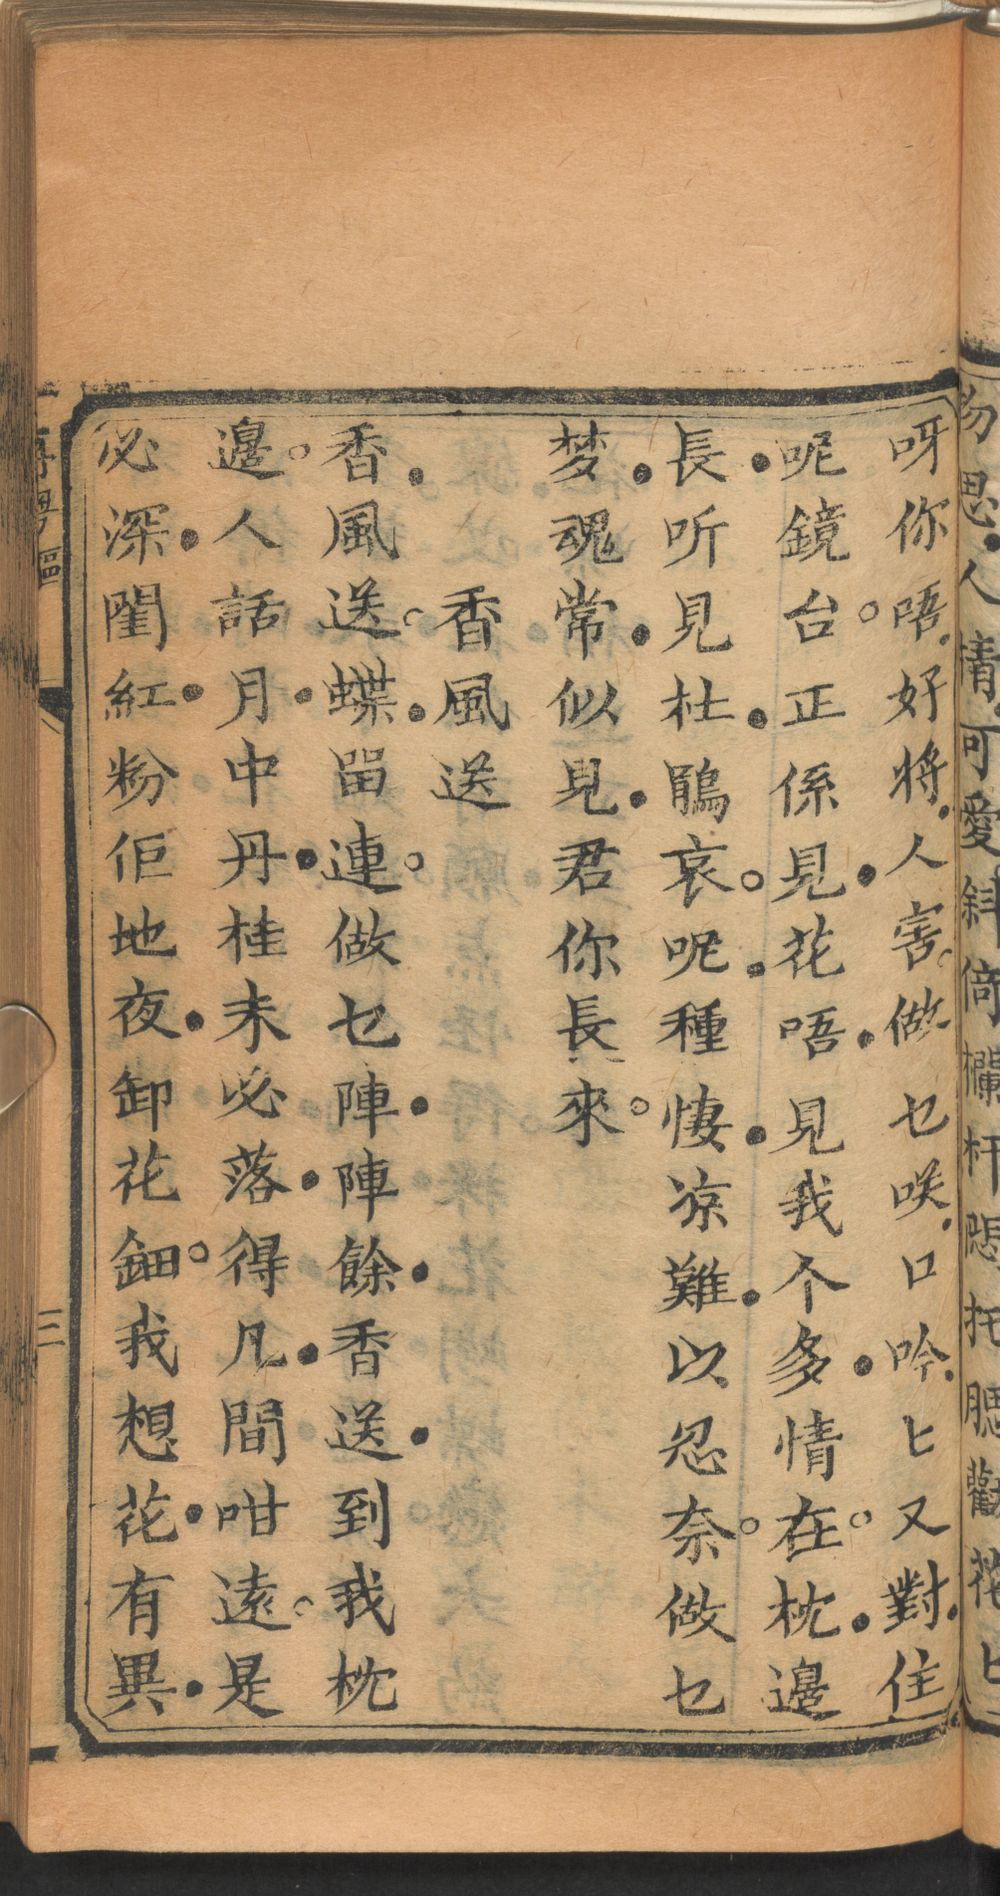 昜思人情可愛斜倚欄杆悶托腮歡花匕
呀你唔好將人害做乜咲口吟匕又對住
呢鏡台正係見花唔見我个多情在枕邊
長听見杜鵑哀呢種悽凉難以忍奈做乜
梦魂常似見君你長來
香風送
香風送蝶留連做乜陣陣餘香送到我枕
邊人話月中丹桂未必落得凡間咁遠是
必深閨紅粉佢地夜卸花鈿我想花有異
粤謳 三